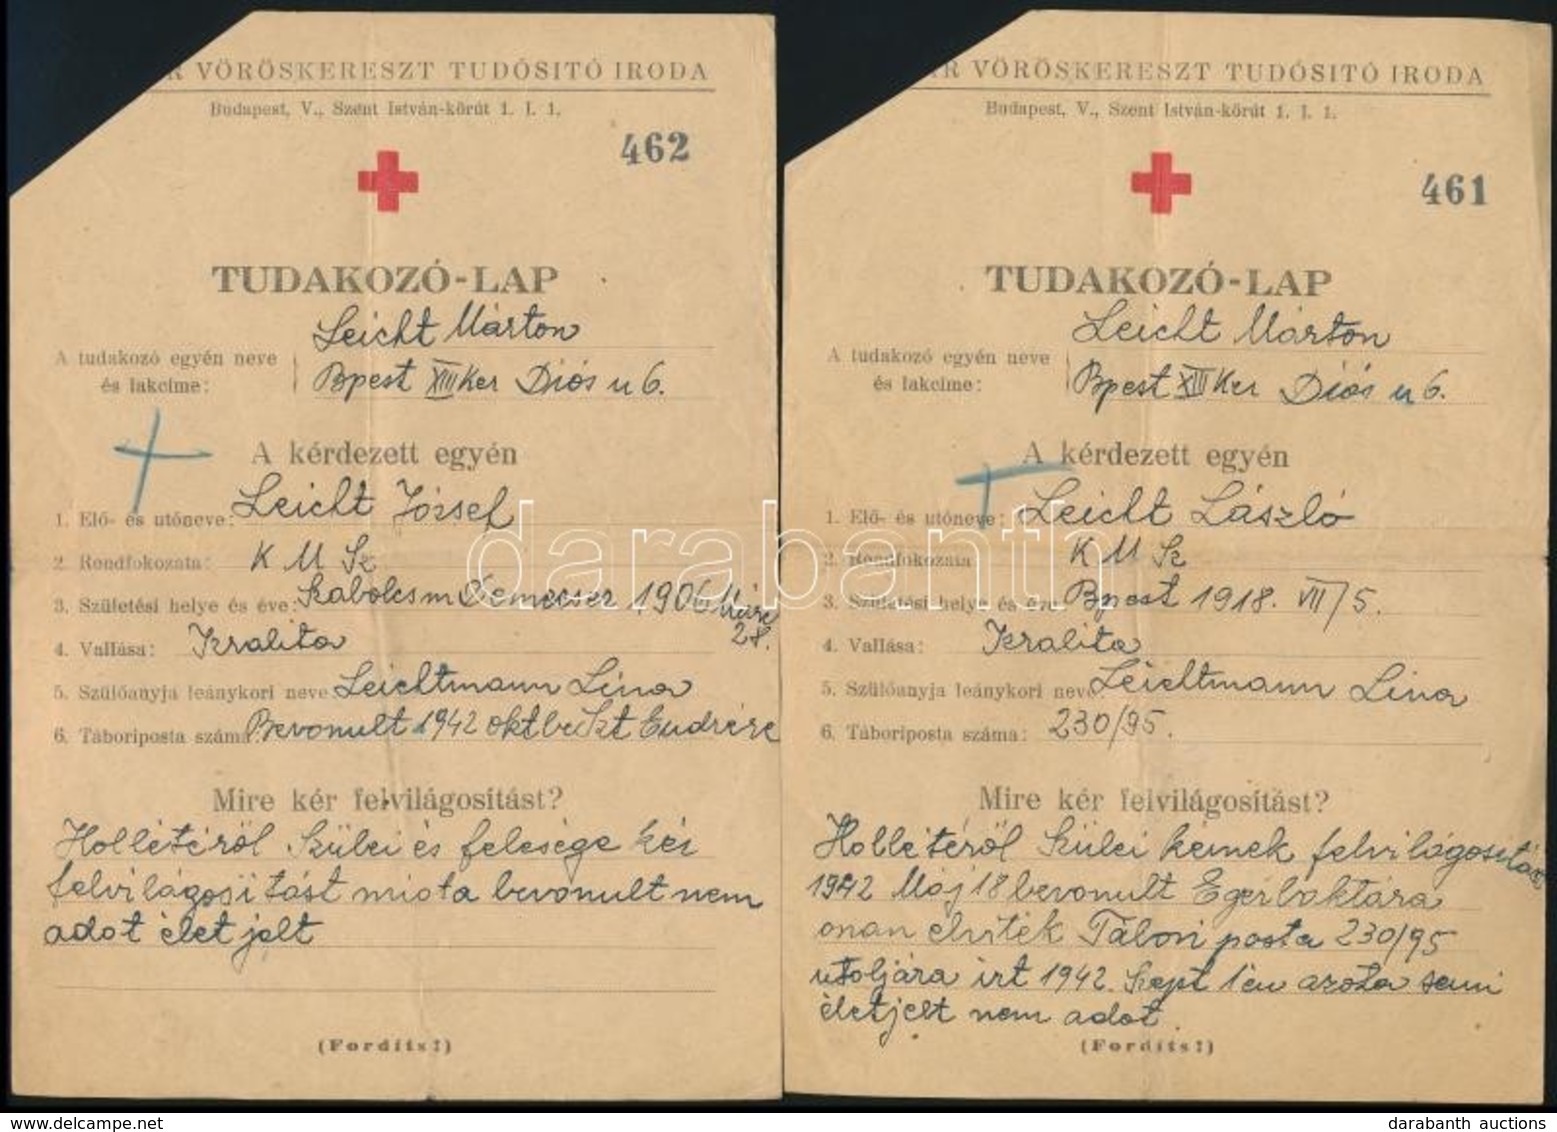 R VÖRÖSKERESZT TUDÓSITÓ IRODA
Budapest, V., Szent István-körút 1. I. 1.
462
TUDAKOZÓ-LAP
A tudakozó egyén neve
és lakcíme:
Leicht Márton
Bpest XIII Ker Diós u 6.
A kérdezett egyén
1. Elő- és utóneve: Leicht József
2. Rendfokozata: K M Sz
3. Születési helye és éve: Szabolcsm Demecser 1906 Márc
28.
4. Vallása: Izralita
5. Szülőanyja leánykori neve Leichtmann Lina
6. Táboriposta száma: Bevonult 1942 oktbe Szt Endrére
Mire kér felvilágosítást?
Hollétéről Szülei és felesége kér
felvilágositást miota bevonult nem
adot élet jelt
(Fordíts!)
YR VÖRÖSKERESZT TUDÓSITÓ IRODA
Budapest, V., Szent István-körút 1. I. 1.
461
TUDAKOZÓ-LAP
A tudakozó egyén neve
és lakcíme:
Leicht Márton
Bpest XIII Ker Diós u 6.
A kérdezett egyén
1. Elő- és utóneve: Leicht László
2. Rendfokozata K M Sz
3. Születési helye és éve Bpest 1918. VII/5.
4. Vallása: Izralita
5. Szülőanyja leánykori neve Leichtmann Lina
6. Táboriposta száma: 230/95.
Mire kér felvilágosítást?
Hollétéről Szülei kérnek felvilágositás
1942 Máj 18 bevonult Egerbaktára
onan elvitték Tábori posta 230/95
utoljára irt 1942. Szept 1én azota semi
életjelt nem adot.
(Fordíts!)
darabanth
darabanth auctions